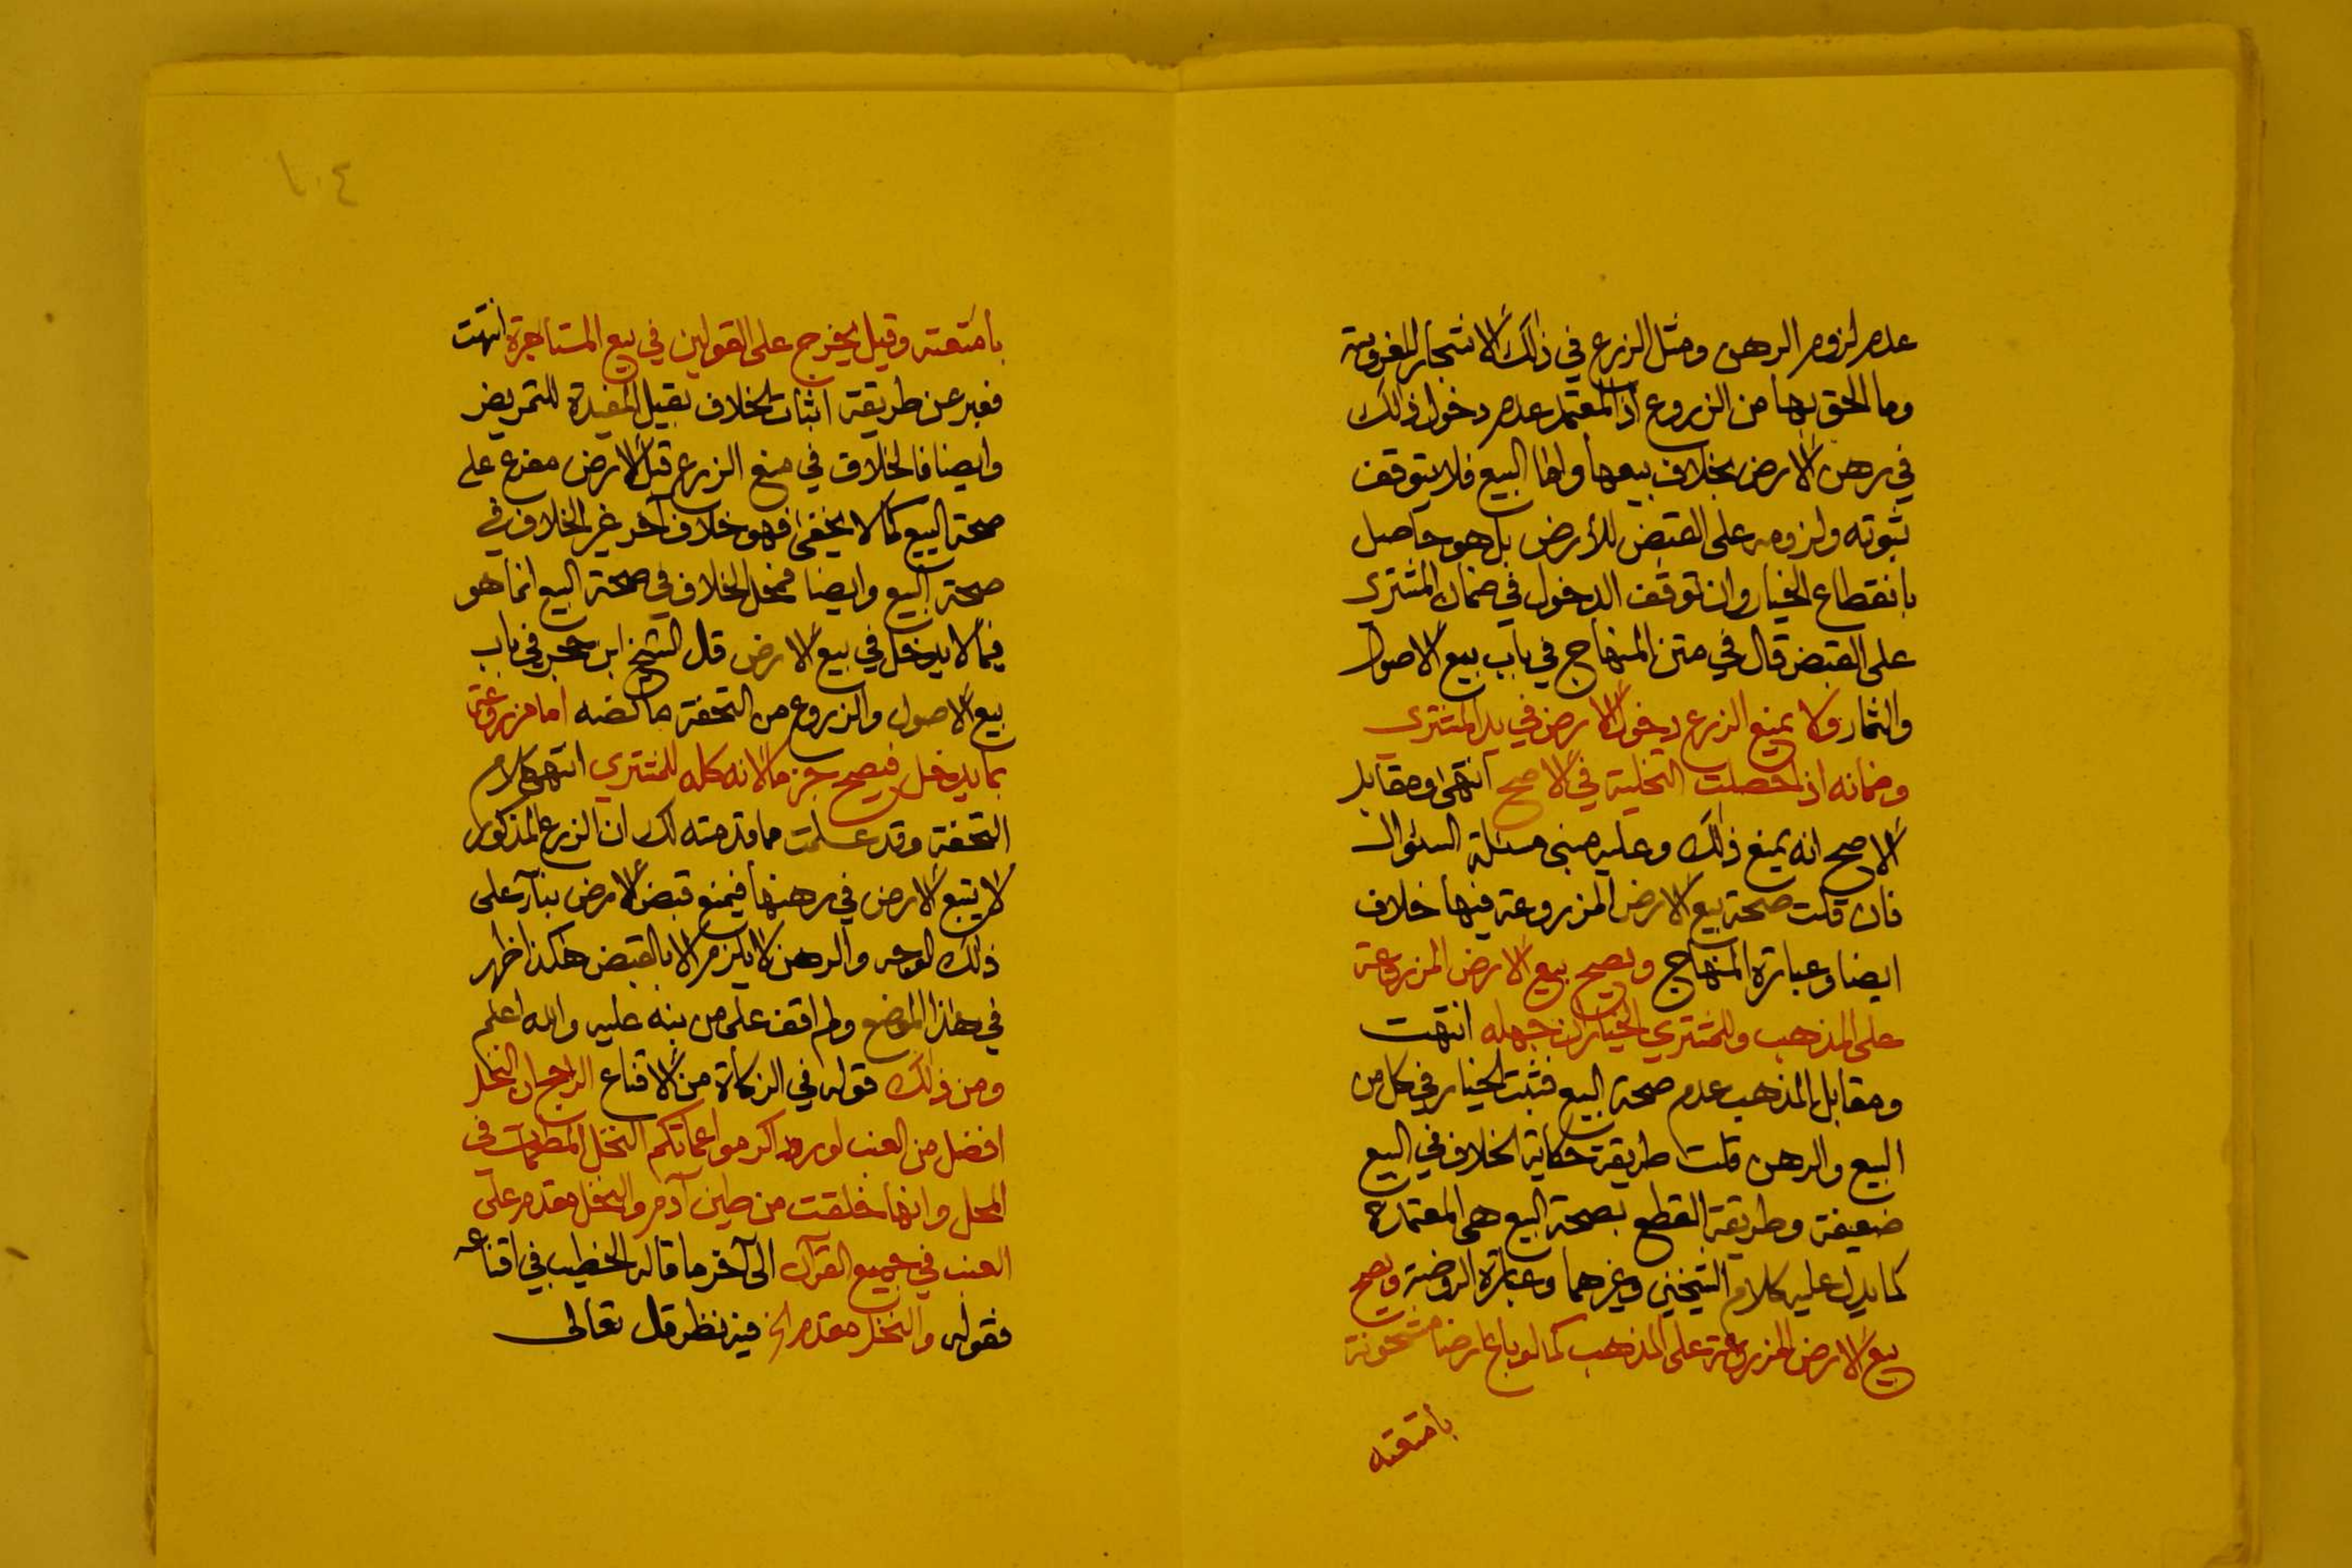 عدم لزوم الرهن ومثل الزرع في ذلك الاشجار المغروسة
وما الحق بها من الزروع اذ المعتمد عدم دخول ذلك
في رهن الارض بخلاف بيعها واما البيع فلا يتوقف
ثبوته ولزومه على القبض للأرض بل هو حاصل
بانقطاع الخيار وان توقف الدخول في ضمان المشترى
على القبض قال في متن المنهاج في باب بيع الاصول
والثمار ولا يمنع الزرع دخول الارض في يد المشترى
وضمانه اذا حصلت التخلية في الاصح انتهى ومقابل
الاصح انه يمنع ذلك وعليه مبنى مسئلة السئوال
فان قلت صحة بيع الارض المزروعة فيها خلاف
ايضا وعبارة المنهاج ويصح بيع الارض المزروعة
على المذهب وللمشتري الخيار ان جهله انتهت
ومقابل المذهب عدم صحة البيع فثبت الخيار في كل من
البيع والرهن قلت طريقة حكاية الخلاف في البيع
ضعيفة وطريقة القطع بصحة البيع هي المعتمدة
كما يدل عليه كلام الشيخين وغيرهما وعبارة الروضة ويصح
بيع الارض المزروعة على المذهب كما لو باع ارضا مشحونة
بأمتعته
١٠٤
بأمتعته وقيل يخرج على القولين في بيع المستاجرة انتهت
فعبر عن طريقة اثبات الخلاف بقيل المفيدة للتمريض
وايضا فالخلاف في منع الزرع قبض الارض مفرع على
صحة البيع كما لا يخفى فهو خلاف آخر غير الخلاف في
صحة البيع وايضا فمحل الخلاف في صحة البيع انما هو
فيما لا يدخل في بيع الارض قال الشيخ ابن حجر في باب
بيع الاصول والزروع من التحفة ما نصه اما مزروعة
بما يدخل فيصح جزما لانه كله للمشتري انتهى كلام
التحفة وقد علمت مما قدمته لك ان الزرع المذكور
لا يتبع الارض في رهنها فيمنع قبض الارض بنآء على
ذلك الوجه والرهن لا يلزم الا بالقبض هكذا ظهر
في هذا الموضع ولم اقف على من نبه عليه والله اعلم
ومن ذلك قوله في الزكاة من الاقناع الراجح ان النخل
افضل من العنب لورود اكرموا عماتكم النخل المطعمات في
المحل وانها خلقت من طين آدم والنخل مقدم على
العنب في جميع القرآن الى آخر ما قاله الخطيب في اقناعه
فقوله والنخل مقدم الخ فيه نظر قال تعالى